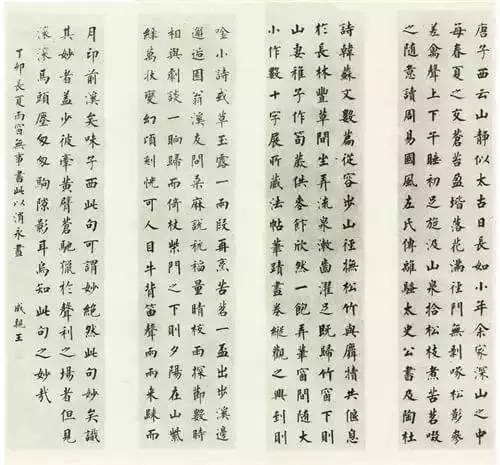 唐子西云山静似太古日長如小年余家深山之中
每春夏之交蒼苔盈堦落花滿徑門無剥啄松影參
差禽聲上下午睡初足旋汲山泉拾松枝煮苦茗啜
之隨意讀周易國風左氏傳離騷太史公書及陶杜
詩韓蘇文數篇從容步山徑撫松竹與麛犢共偃息
於長林豐草間坐弄流泉漱齒濯足既歸竹窗下則
山妻稚子作筍蕨供麥飯欣然一飽弄筆窗間隨大
小作數十字展所藏法帖筆蹟畫卷縱觀之興到則
唫小詩或草玉露一兩段再烹苦茗一盃出步溪邊
邂逅園翁溪友問桑麻說秔稻量晴校雨探節數時
相與劇談一晌歸而倚杖柴門之下則夕陽在山紫
綠萬狀變幻頃刻恍可人目牛背笛聲兩兩來歸而
月印前溪矣味子西此句可謂妙絕然此句妙矣識
其妙者蓋少彼牽黄臂蒼馳獵於聲利之場者但見
滾滾馬頭塵匆匆駒隙影耳烏知此句之妙哉
丁卯長夏雨窗無事書此以消永晝 成親王